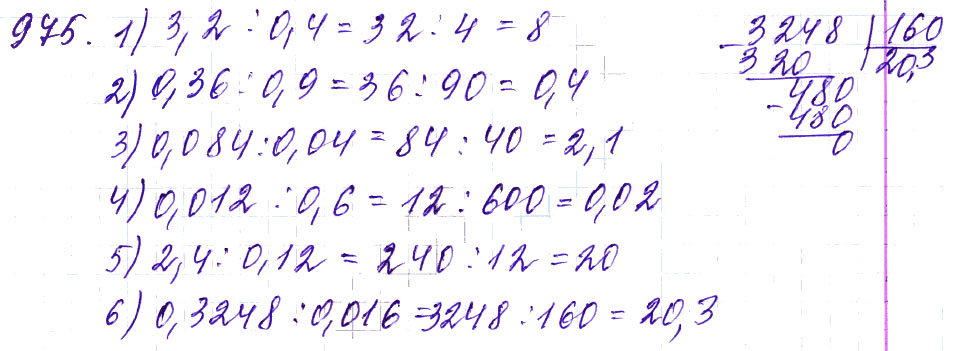 975. 1) 3,2 : 0,4 = 32 : 4 = 8
2) 0,36 : 0,9 = 36 : 90 = 0,4
3) 0,084 : 0,04 = 84 : 40 = 2,1
4) 0,012 : 0,6 = 12 : 600 = 0,02
5) 2,4 : 0,12 = 240 : 12 = 20
6) 0,3248 : 0,016 = 3248 : 160 = 20,3
- 3248 | 160
320 | 20,3
- 480
480
0